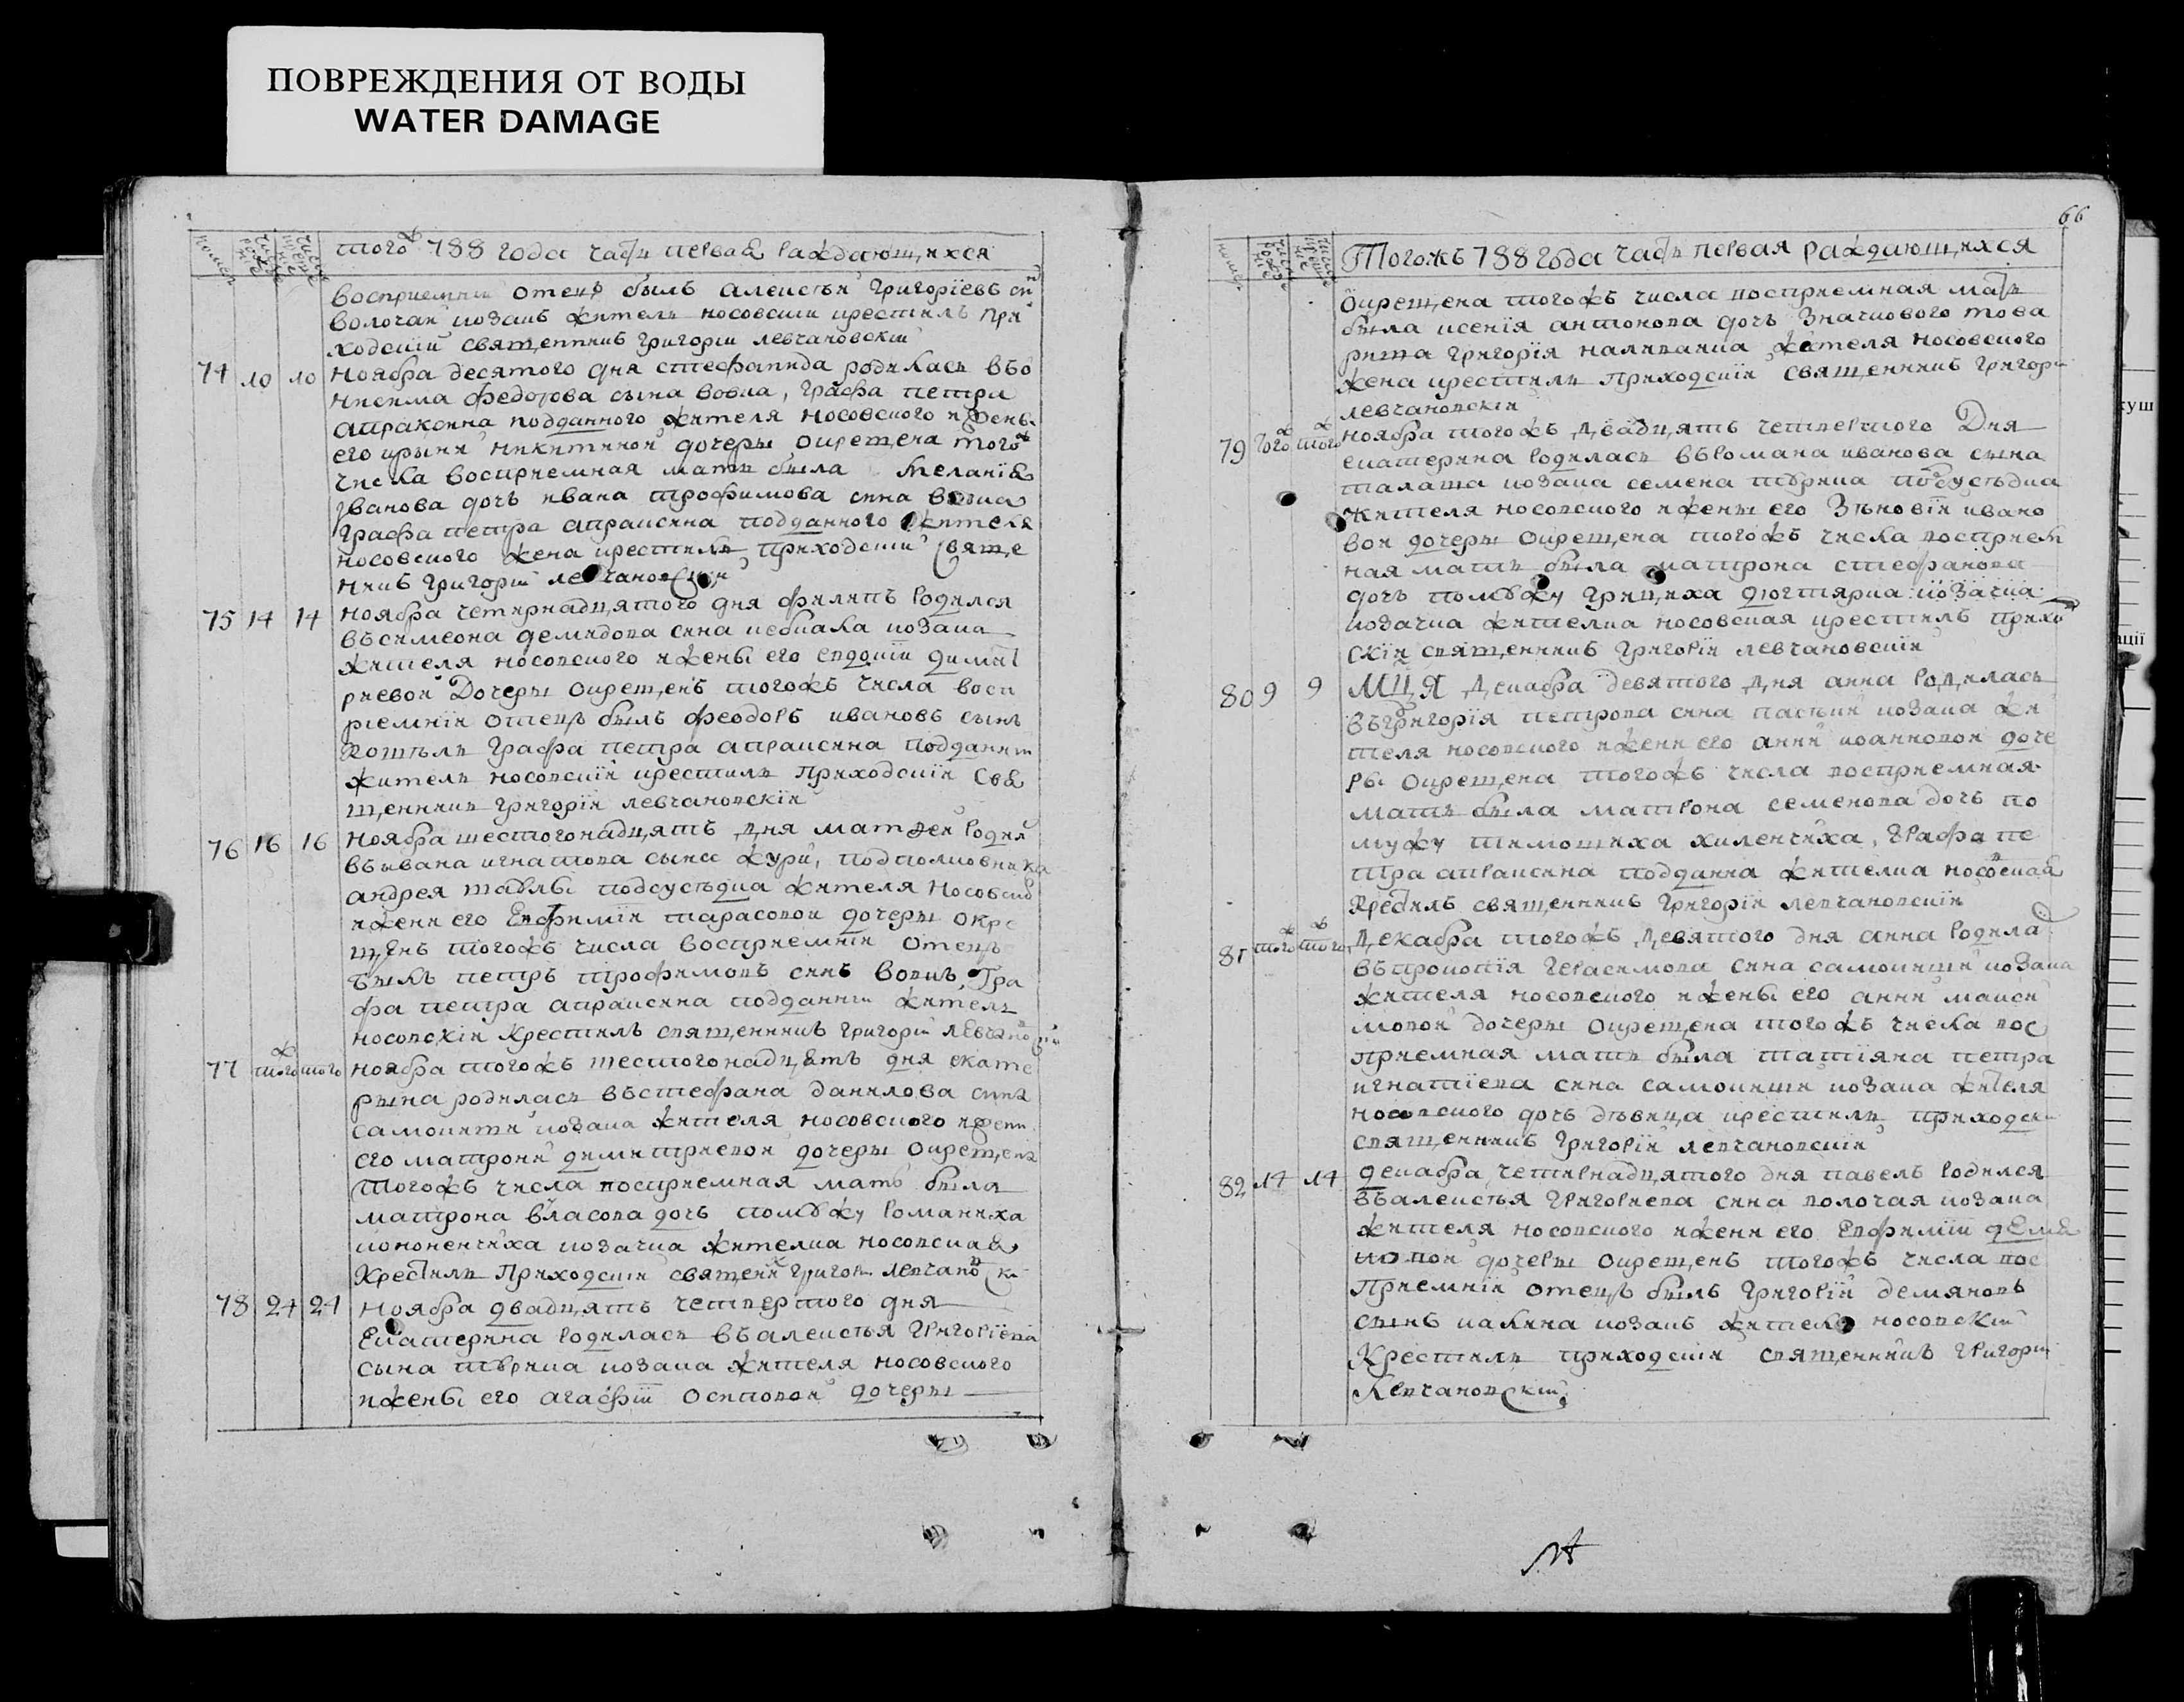 ПОВРЕЖДЕНИЯ ОТ ВОДЫ
WATER DAMAGE
номер
число рожденi
число крещенi
того ж 788 года часть первая раждающихся
восприемни отецъ былъ алексѣй григорїевъ сн
волочай козакъ житель носовски крестилъ при
ходский священникъ григории левчановский
74 10 10 ноября десятого дня стефанида родилась въ о
нисима федорова сына вовка, графа петра
апраксина подданного жителя носовского и жены
его ирини никитиной дочеры окрещена того ж
числа восприемная мать была меланїя
иванова дочъ ивана трофимова сина вовка
графа петра апраксина подданного жителя
носовского жена крестилъ приходский свяще
никъ григорий левчановский
75 14 14 ноября четирнадцятого дня филипъ родился
въ симеона демидова сина козака
жителя носовского и жены его евдокии димит
риевой дочеры окрещенъ тогожъ числа восп
рїемнїй отецъ былъ феодоръ ивановъ сынъ
кошѣль графа петра апраксина подданни
житель носовскїй крестилъ приходскїй свя
щенникъ григорїй левчановскїй
76 16 16 ноября шестогонадцять дня матфей родил
въ ивана игнатова сына жури, подполковника
андрея подсусѣдка жителя носовско
и жени его евфимїи тарасовой дочеры окре
щенъ тогожъ числа восприемнїй отецъ
былъ петръ трофимовъ синъ вовкъ, гра
фа петра апраксина подданни житель
носовскїй крестилъ священникъ григорий левчановски
77 того ж того ноября тогожъ шестогонадцять дня екате
рына родилась въ стефана данилова сина
самокиши козака жителя носовского и жени
его матрони димитриевой дочеры окрещена
тогожъ числа восприемная мать была
матрона власова дочъ по мужу романиха
кононенчиха козачка жителка носовская
крестилъ приходский священ григорий левчановски
78 24 24 ноября двадцять четвертого дня
екатерина родилась въ алексѣя григорїева
сына козака жителя носовского
и жены его агафїи осиповой дочеры
66
номер
число рожденi
число крещенi
Тогожъ 788 года часть первая раждающихся
окрещена тогожъ числа восприемная мать
была ксенїя антонова дочъ значкового това
риша григорїя наливайка жителя носовского
жена крестилъ приходскїй священникъ григори
левчановскїй
79 того ж того ж ноября тогожъ двадцять четвертого дня
екатерина родилась въ романа иванова сына
талаша козака семена подсусѣдка
жителя носовского и жены его зѣновїи ивано
вой дочеры окрещена тогожъ числа восприем
ная мать была матрона стефанова
дочъ по мужу грициха козачка
козачка жителка носовская крестилъ прихо
скїй священникъ григорїй левчановскїй
80 9 9 мця декабря девятого дня анна родилась
въ григорїя петрова сина пасѣки козака жи
теля носовского и жени его анни иоанновой доче
ры окрещена тогожъ числа восприемная
мать была матрона семенова дочъ по
мужу тимошиха хиленчиха, графа пе
тра апраксина подданна жителка носовская
крестилъ священникъ григорїй левчановскїй
81 того ж того ж декабря тогожъ девятого дня анна родила
въ прокопїя герасимова сина самокиши козака
жителя носовского и жены его анни макси
мовой дочеры окрещена тогожъ числа вос
приемная мать была татїяна петра
игнатїева сина самокиши козака жителя
носовского дочъ дѣвица крестилъ приходски
священникъ григорїй левчановскїй
82 14 14 декабря четирнадцятого дня павелъ родился
въ алексѣя григориева сина волочая козака
жителя носовского и жени его евфимїи демя
новой дочеры окрещенъ тогожъ числа вос
приемнїй отецъ былъ григорїй демяновъ
сынъ козакъ житель носовский
крестилъ приходскїй священникъ григорий
левчановский